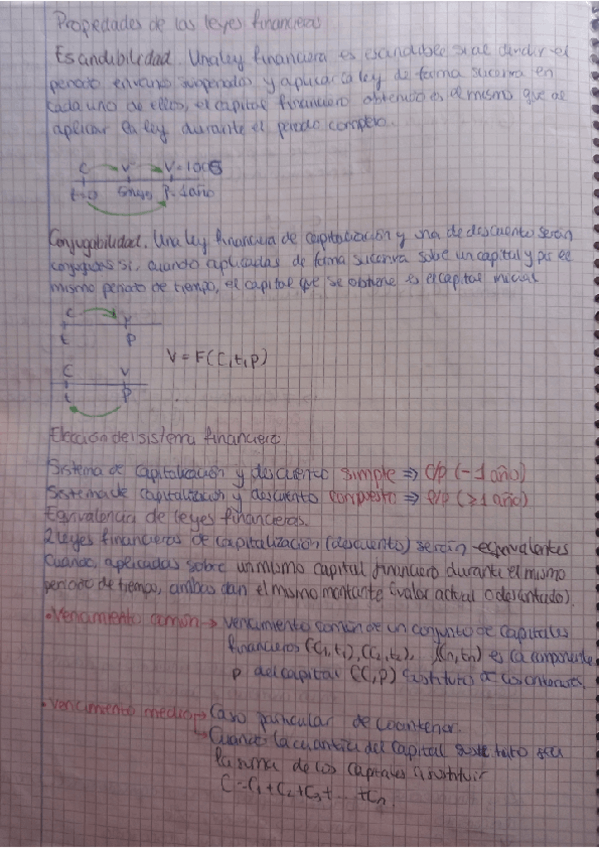 Propiedades de las leyes financieras
Escindibilidad. Una ley financiera es escindible si al dividir el
periodo en varios subperiodos y aplicar la ley de forma sucesiva en
cada uno de ellos, el capital financiero obtenido es el mismo que de
aplicar la ley durante el periodo completo.
C V V=100€
t=0 6meses P=1año
Conjugabilidad. Una ley financiera de capitalización y una de descuento serán
conjugadas si, cuando aplicadas de forma sucesiva sobre un capital y por el
mismo periodo de tiempo, el capital que se obtiene es el capital inicial
C V
t P
V = F(C,t,p)
C V
t P
Elección del sistema financiero
Sistema de capitalización y descuento simple ⇒ c/p (-1 año)
Sistema de capitalización y descuento compuesto ⇒ l/p (≥1 año)
Equivalencia de leyes financieras.
2 leyes financieras de capitalización (descuento) serán equivalentes
cuando, aplicadas sobre un mismo capital financiero durante el mismo
periodo de tiempo, ambas dan el mismo montante (valor actual o descontado).
• Vencimiento común → vencimiento común de un conjunto de capitales
financieros (C1,t1),(C2,t2), (Cn,tn) es la componente
P del capital (C,P) sustituto de los anteriores.
• Vencimiento medio → Caso particular de
→ Cuando la cuantía del capital sustituto sea
la suma de los capitales a sustituir
C = C1 + C2 + C3 + ... + Cn